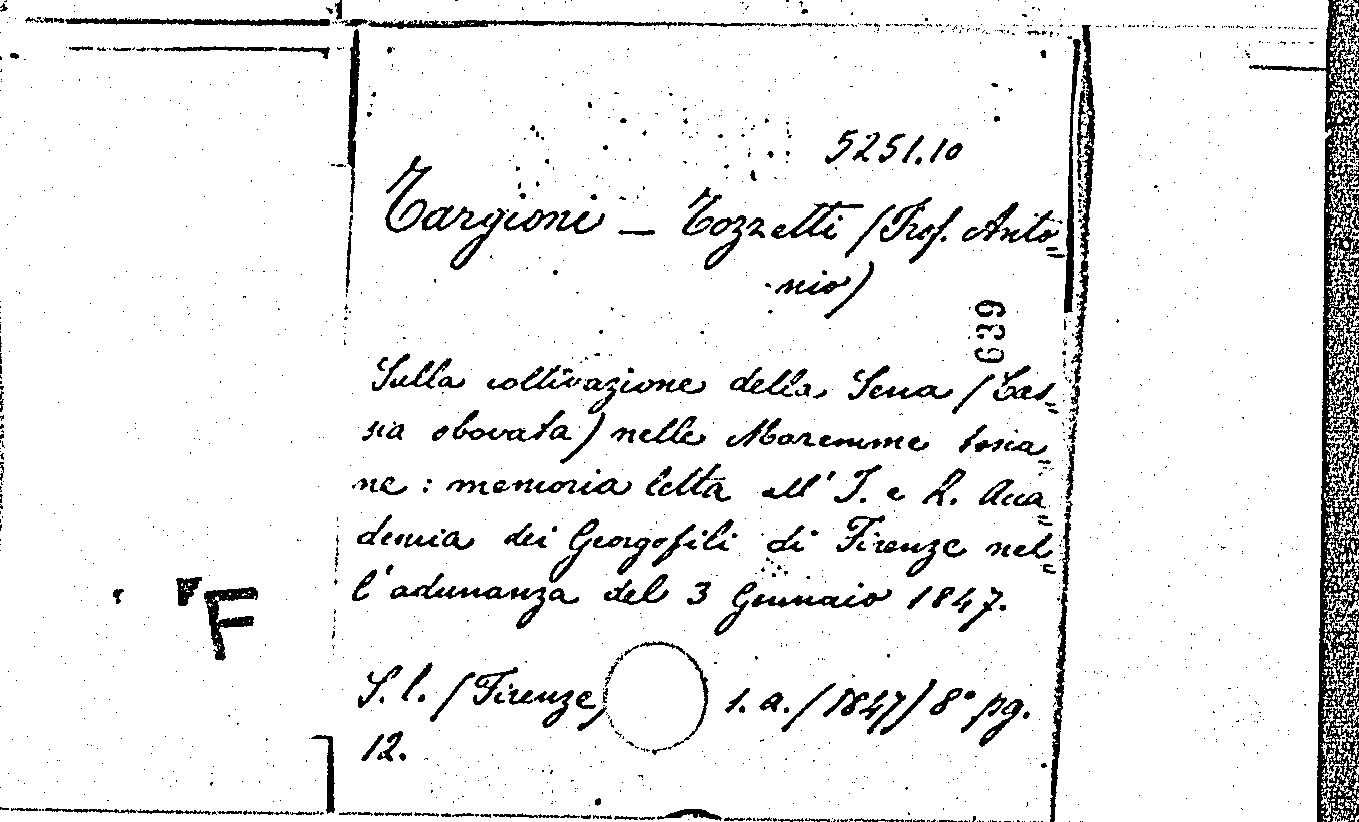 5251.10
Targioni - Tozzetti (Prof. Anto=
nio)
639
Sulla coltivazione della Senna (Cas=
sia obovata) nelle Maremme tosca=
ne: memoria letta all' I. e R. Acca=
demia dei Georgofili di Firenze nel=
l'adunanza del 3 Gennaio 1847.
S. l. (Firenze) s. a. (1847) 8° pg.
12.
F